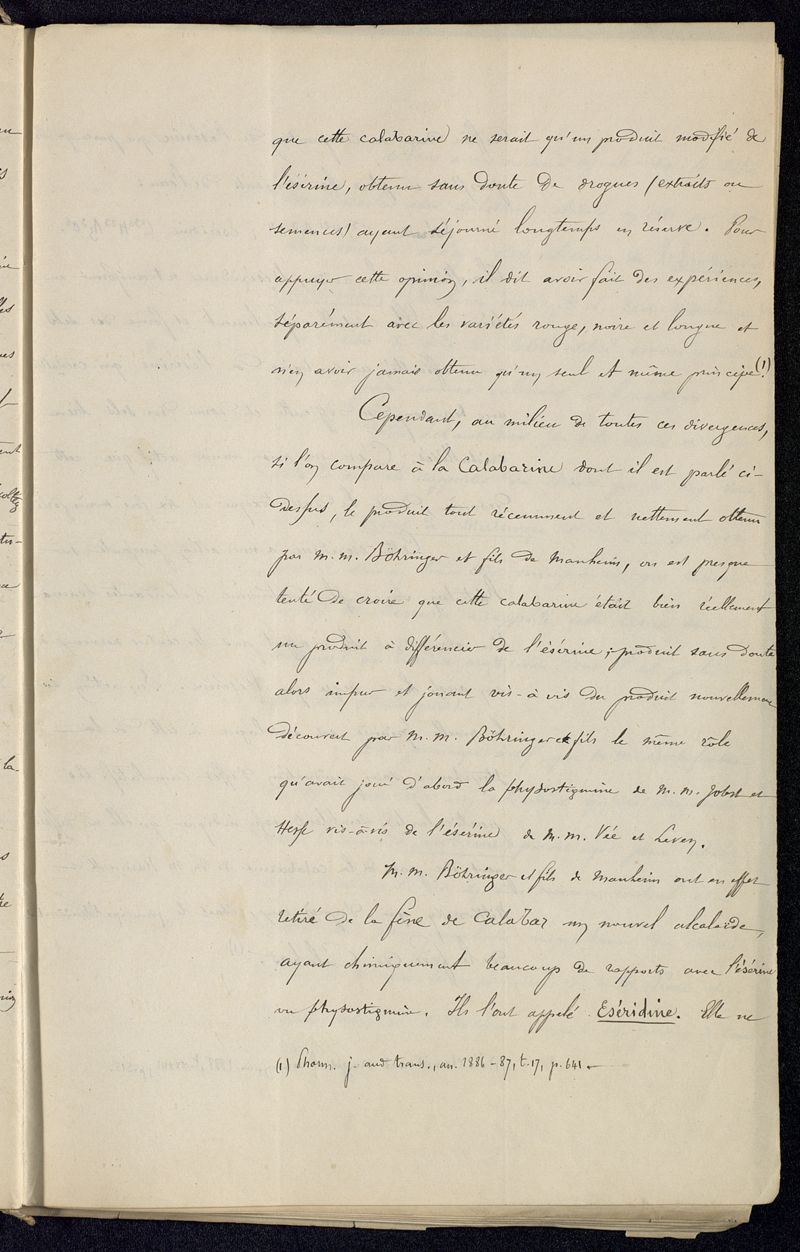 que cette calabarine ne serait qu'un produit modifié de
l'ésérine, obtenu sans doute de drogues (extraits ou
semences) ayant séjourné longtemps en réserve. Pour
appuyer cette opinion, il dit avoir fait des expériences,
séparément avec les variétés rouge, noire et longue et
n'en avoir jamais obtenu qu'un seul et même principe.(1)
Cependant, au milieu de toutes ces divergences,
si l'on compare à la Calabarine dont il est parlé ci-
dessus, le produit tout récemment et nettement obtenu
par M.M. Böhringer et fils de Manheim, on est presque
tenté de croire que cette calabarine était bien réellement
un produit à différencier de l'ésérine; produit sans doute
alors impur et jouant vis-à-vis du produit nouvellement
découvert par M.M. Böhringer et fils le même rôle
qu'avait joué d'abord la physostigmine de M.M. Jobst et
Hesse vis-à-vis de l'ésérine de M.M. Vée et Leven.
M.M. Böhringer et fils de Manheim ont en effet
retiré de la fève de Calabar un nouvel alcaloïde,
ayant chimiquement beaucoup de rapports avec l'ésérine
ou physostigmine. Ils l'ont appelé Eséridine. Elle ne
(1) Pharm. j. and trans., an. 1886-87, t. 17, p. 641.